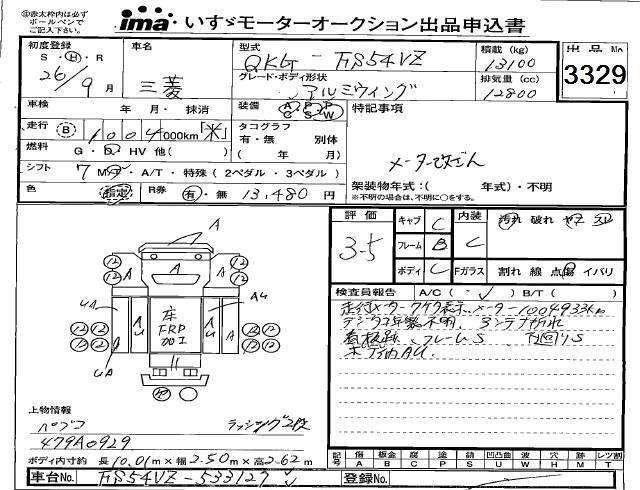 ㊟赤太枠内は必ず
ボールペンで
ご記入下さい。
ima いすゞモーターオークション出品申込書
初度登録 車名 型式 積載 (kg) 出品No
S・H・R 三菱 QKG-FS54VZ 13100 3329
26/9月 グレード・ボディ形状 排気量 (cc)
アルミウイング 12800
車検 年 月・抹消 装備 AC PS PW 特記事項
走行 B 1004000km 米 タコグラフ
有・無 別体
燃料 G・D・HV 他( ) ( 年 月)
メーター改ざん
シフト 7 MT・A/T・特殊(2ペダル・3ペダル) 架装物年式:( 年式)・不明
色 指定 R券 有・無 13,480円 ※不明の場合は、不明に○をする。
評価 3.5
キャブ C 内装 C 汚れ 破れ ヤケ スレ
フレーム B
ボディ C Fガラス 割れ 線 点傷 イバリ
検査員報告 A/C( ✓ ) B/T( )
走行メーター 表示 メーター1004933km
不明
看板跡 フレームS 下回りS
AU
A
12 12
12 12
A A
UA AU AU AU
床
FRP
12 12 12 12
12 12 12 12
UA
上物情報
パブコ ラッシング2段
479A0929
ボディ内寸約 長10.01m×幅2.50m×高2.62m
記号 傷 A 板金 B 腐 C 塗 P 錆 S 凹凸曲 U 波 W 穴 H 跡 M レツ割 T
車台No. FS54VZ-533127 登録No.